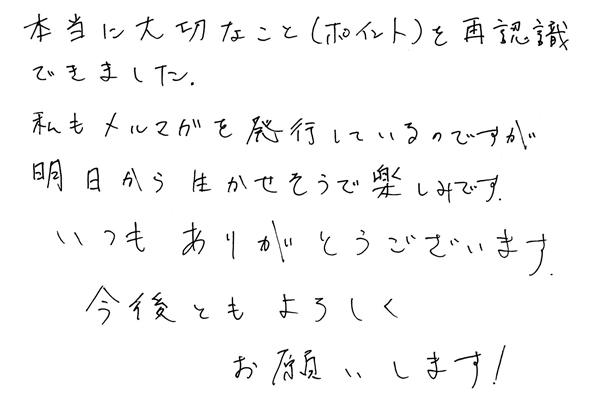 本当に大切なこと(ポイント)を再認識
できました.
私もメルマガを発行しているのですが
明日から生かせそうで楽しみです.
いつもありがとうございます.
今後ともよろしく
お願いします!